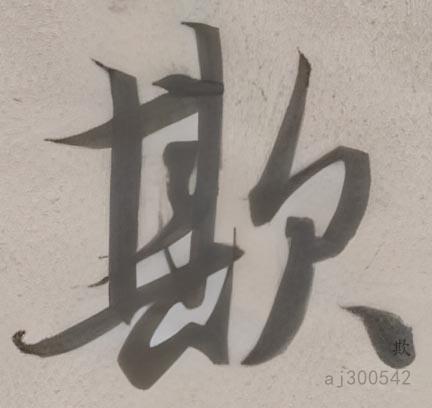 欺
欺
aj300542